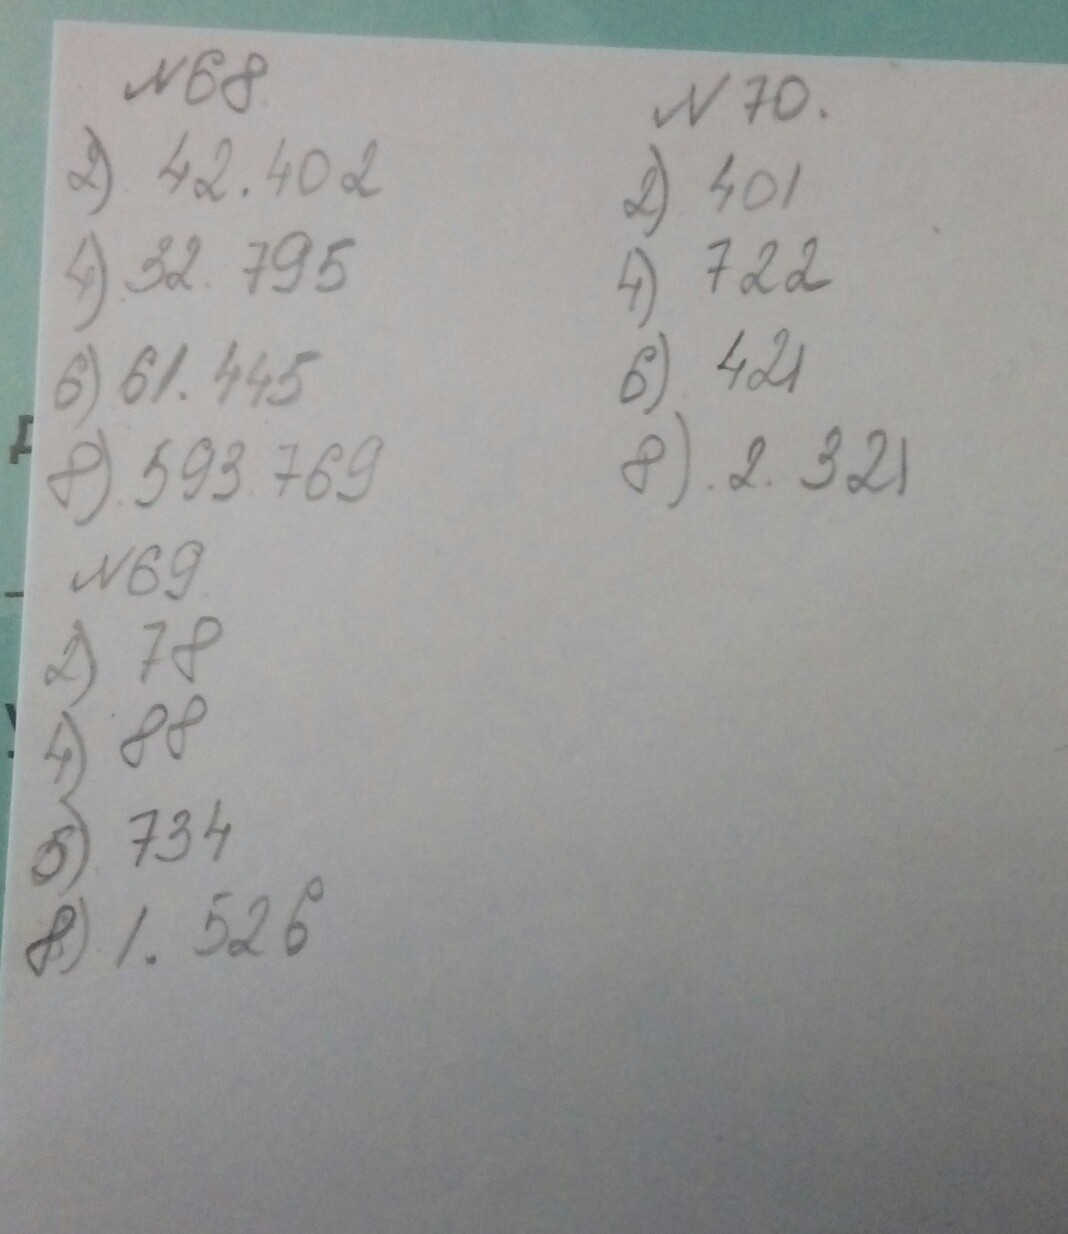 №68.
2) 42.402
4) 32. 795
6) 61.445
8). 593.769
№69
2) 78
4) 88
5) 734
8) 1. 526
№ 70.
2) 401
4) 722
6) 421
8). 2. 321